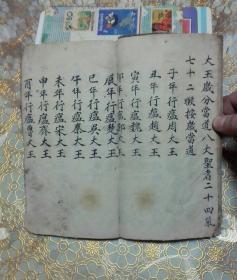 大王歲分當道八大聖者二十四氣
七十二候按歲當道
子年行瘟周大王
丑年行瘟趙大王
寅年行瘟魏大王
卯年行瘟鄭大王
辰年行瘟楚大王
巳年行瘟吳大王
午年行瘟秦大王
未年行瘟宋大王
申年行瘟齊大王
酉年行瘟魯大王